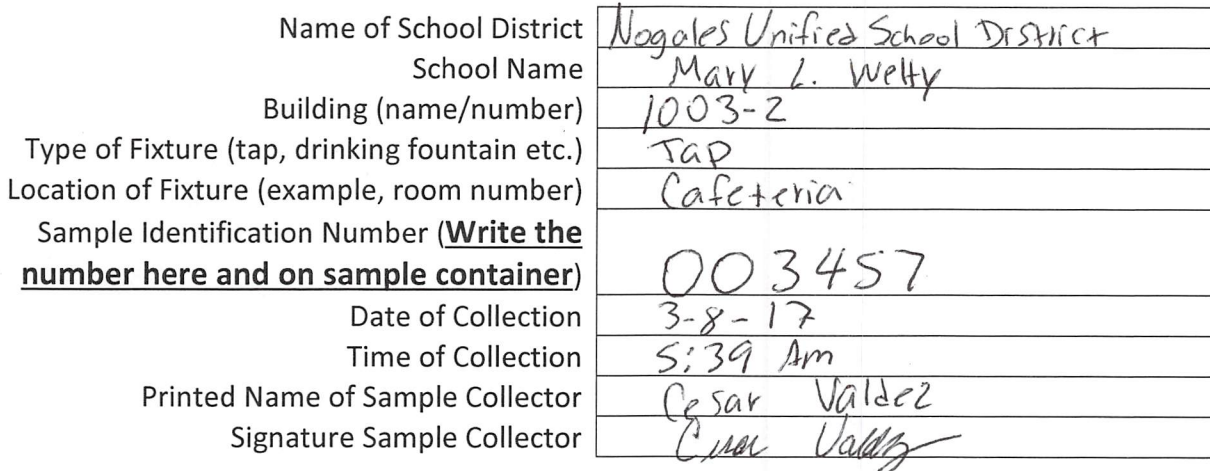 Name of School District Nogales Unified School District
School Name Mary L. Welty
Building (name/number) 1003-2
Type of Fixture (tap, drinking fountain etc.) Tap
Location of Fixture (example, room number) Cafeteria
Sample Identification Number (Write the
number here and on sample container) 003457
Date of Collection 3-8-17
Time of Collection 5:39 Am
Printed Name of Sample Collector Cesar Valdez
Signature Sample Collector Cesar Valdez